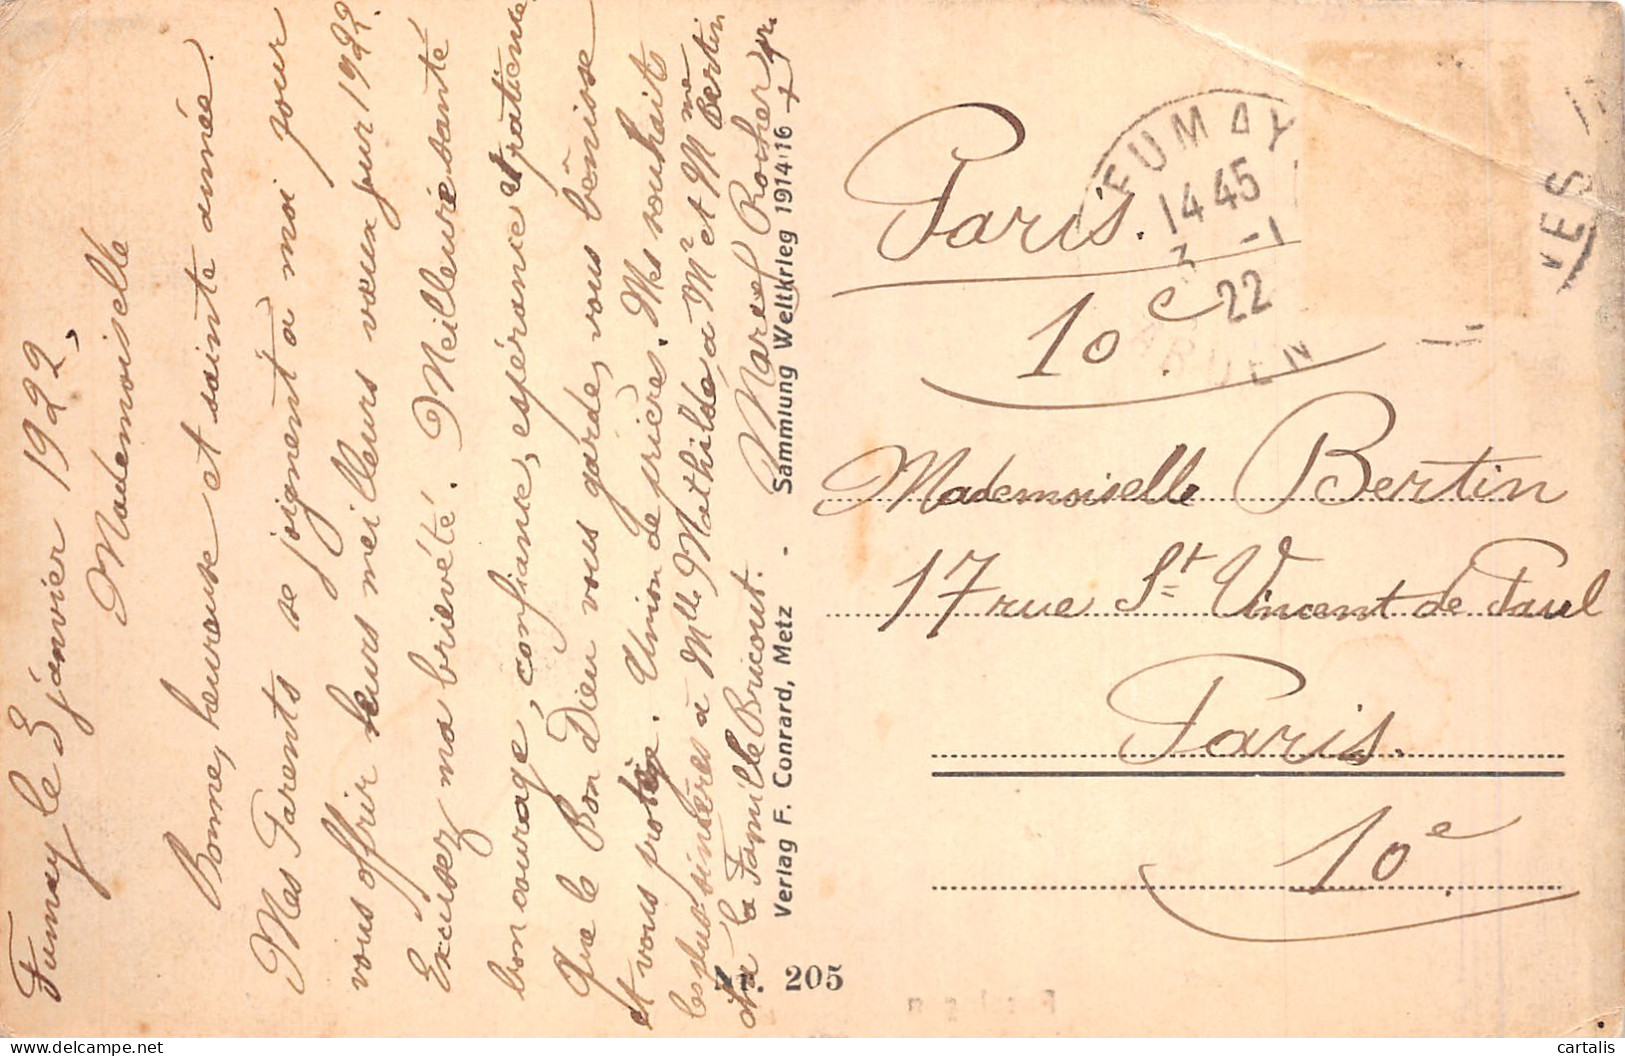 Fumay le 3 janvier 1922.
Mademoiselle
Bonne, heureuse et sainte année.
Mes Parents se joignent à moi pour
vous offrir leurs meilleurs vœux pour 1922.
Excusez ma brièveté. Meilleure santé
bon courage, confiance, espérance et patience.
Que le Bon Dieu vous garde, vous bénisse
et vous protège. Union de prières. Mes souhaits
les plus sincères à Mlle Mathilde, à Mr et Mme Bertin
et à la Famille Bricout.
Marcel Rocher
Verlag F. Conrard, Metz - Sammlung Weltkrieg 1914/16
Nr. 205
FUMAY
14 45
3 -1
22
ARDEN
VES
Paris.
10e
Mademoiselle Bertin
17 rue St Vincent de Paul
Paris.
10e
cartalis